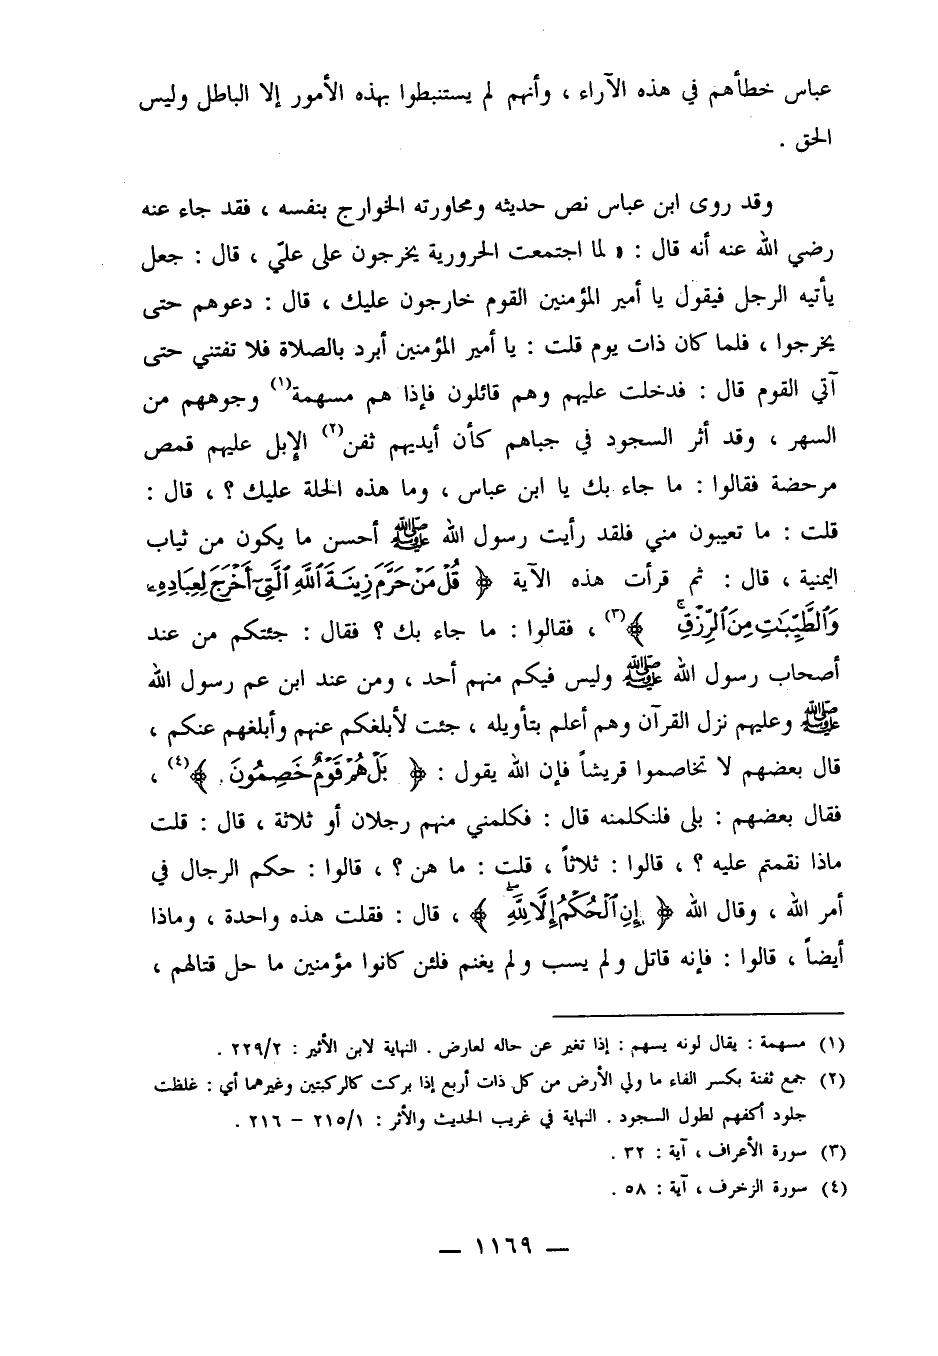 عباس خطأهم في هذه الآراء ، وأنهم لم يستنبطوا بهذه الأمور إلا الباطل وليس
الحق .
وقد روى ابن عباس نص حديثه ومحاورته الخوارج بنفسه ، فقد جاء عنه
رضي الله عنه أنه قال : « لما اجتمعت الحرورية يخرجون على عليّ ، قال : جعل
يأتيه الرجل فيقول يا أمير المؤمنين القوم خارجون عليك ، قال : دعوهم حتى
يخرجوا ، فلما كان ذات يوم قلت : يا أمير المؤمنين أبرد بالصلاة فلا تفتني حتى
آتي القوم قال : فدخلت عليهم وهم قائلون فإذا هم مسهمة(١) وجوههم من
السهر ، وقد أثر السجود في جباهم كأن أيديهم ثفن(٢) الإبل عليهم قمص
مرحضة فقالوا : ما جاء بك يا ابن عباس ، وما هذه الحلة عليك ؟ ، قال :
قلت : ما تعيبون مني فلقد رأيت رسول الله ﷺ أحسن ما يكون من ثياب
اليمنية ، قال : ثم قرأت هذه الآية ﴿ قُلْ مَنْ حَرَّمَ زِينَةَ ٱللَّهِ ٱلَّتِىٓ أَخْرَجَ لِعِبَادِهِۦ
وَٱلطَّيِّبَٰتِ مِنَ ٱلرِّزْقِۚ ﴾(٣) ، فقالوا : ما جاء بك ؟ فقال : جئتكم من عند
أصحاب رسول الله ﷺ وليس فيكم منهم أحد ، ومن عند ابن عم رسول الله
ﷺ وعليهم نزل القرآن وهم أعلم بتأويله ، جئت لأبلغكم عنهم وأبلغهم عنكم ،
قال بعضهم لا تخاصموا قريشاً فإن الله يقول : ﴿ بَلْ هُمْ قَوْمٌ خَصِمُونَ ﴾(٤) ،
فقال بعضهم : بلى فلنكلمنه قال : فكلمني منهم رجلان أو ثلاثة ، قال : قلت
ماذا نقمتم عليه ؟ ، قالوا : ثلاثاً ، قلت : ما هن ؟ ، قالوا : حكم الرجال في
أمر الله ، وقال الله ﴿ إِنِ ٱلْحُكْمُ إِلَّا لِلَّهِۖ ﴾ ، قال : فقلت هذه واحدة ، وماذا
أيضاً ، قالوا : فإنه قاتل ولم يسب ولم يغنم فلئن كانوا مؤمنين ما حل قتالهم ،
(١) مسهمة : يقال لونه يسهم : إذا تغير عن حاله لعارض . النهاية لابن الأثير : ٢٢٩/٢ .
(٢) جمع ثفنة بكسر الفاء ما ولي الأرض من كل ذات أربع إذا بركت كالركبتين وغيرهما أي : غلظت
جلود أكفهم لطول السجود . النهاية في غريب الحديث والأثر : ٢١٥/١ – ٢١٦ .
(٣) سورة الأعراف ، آية : ٣٢ .
(٤) سورة الزخرف ، آية : ٥٨ .
— ١١٦٩ —